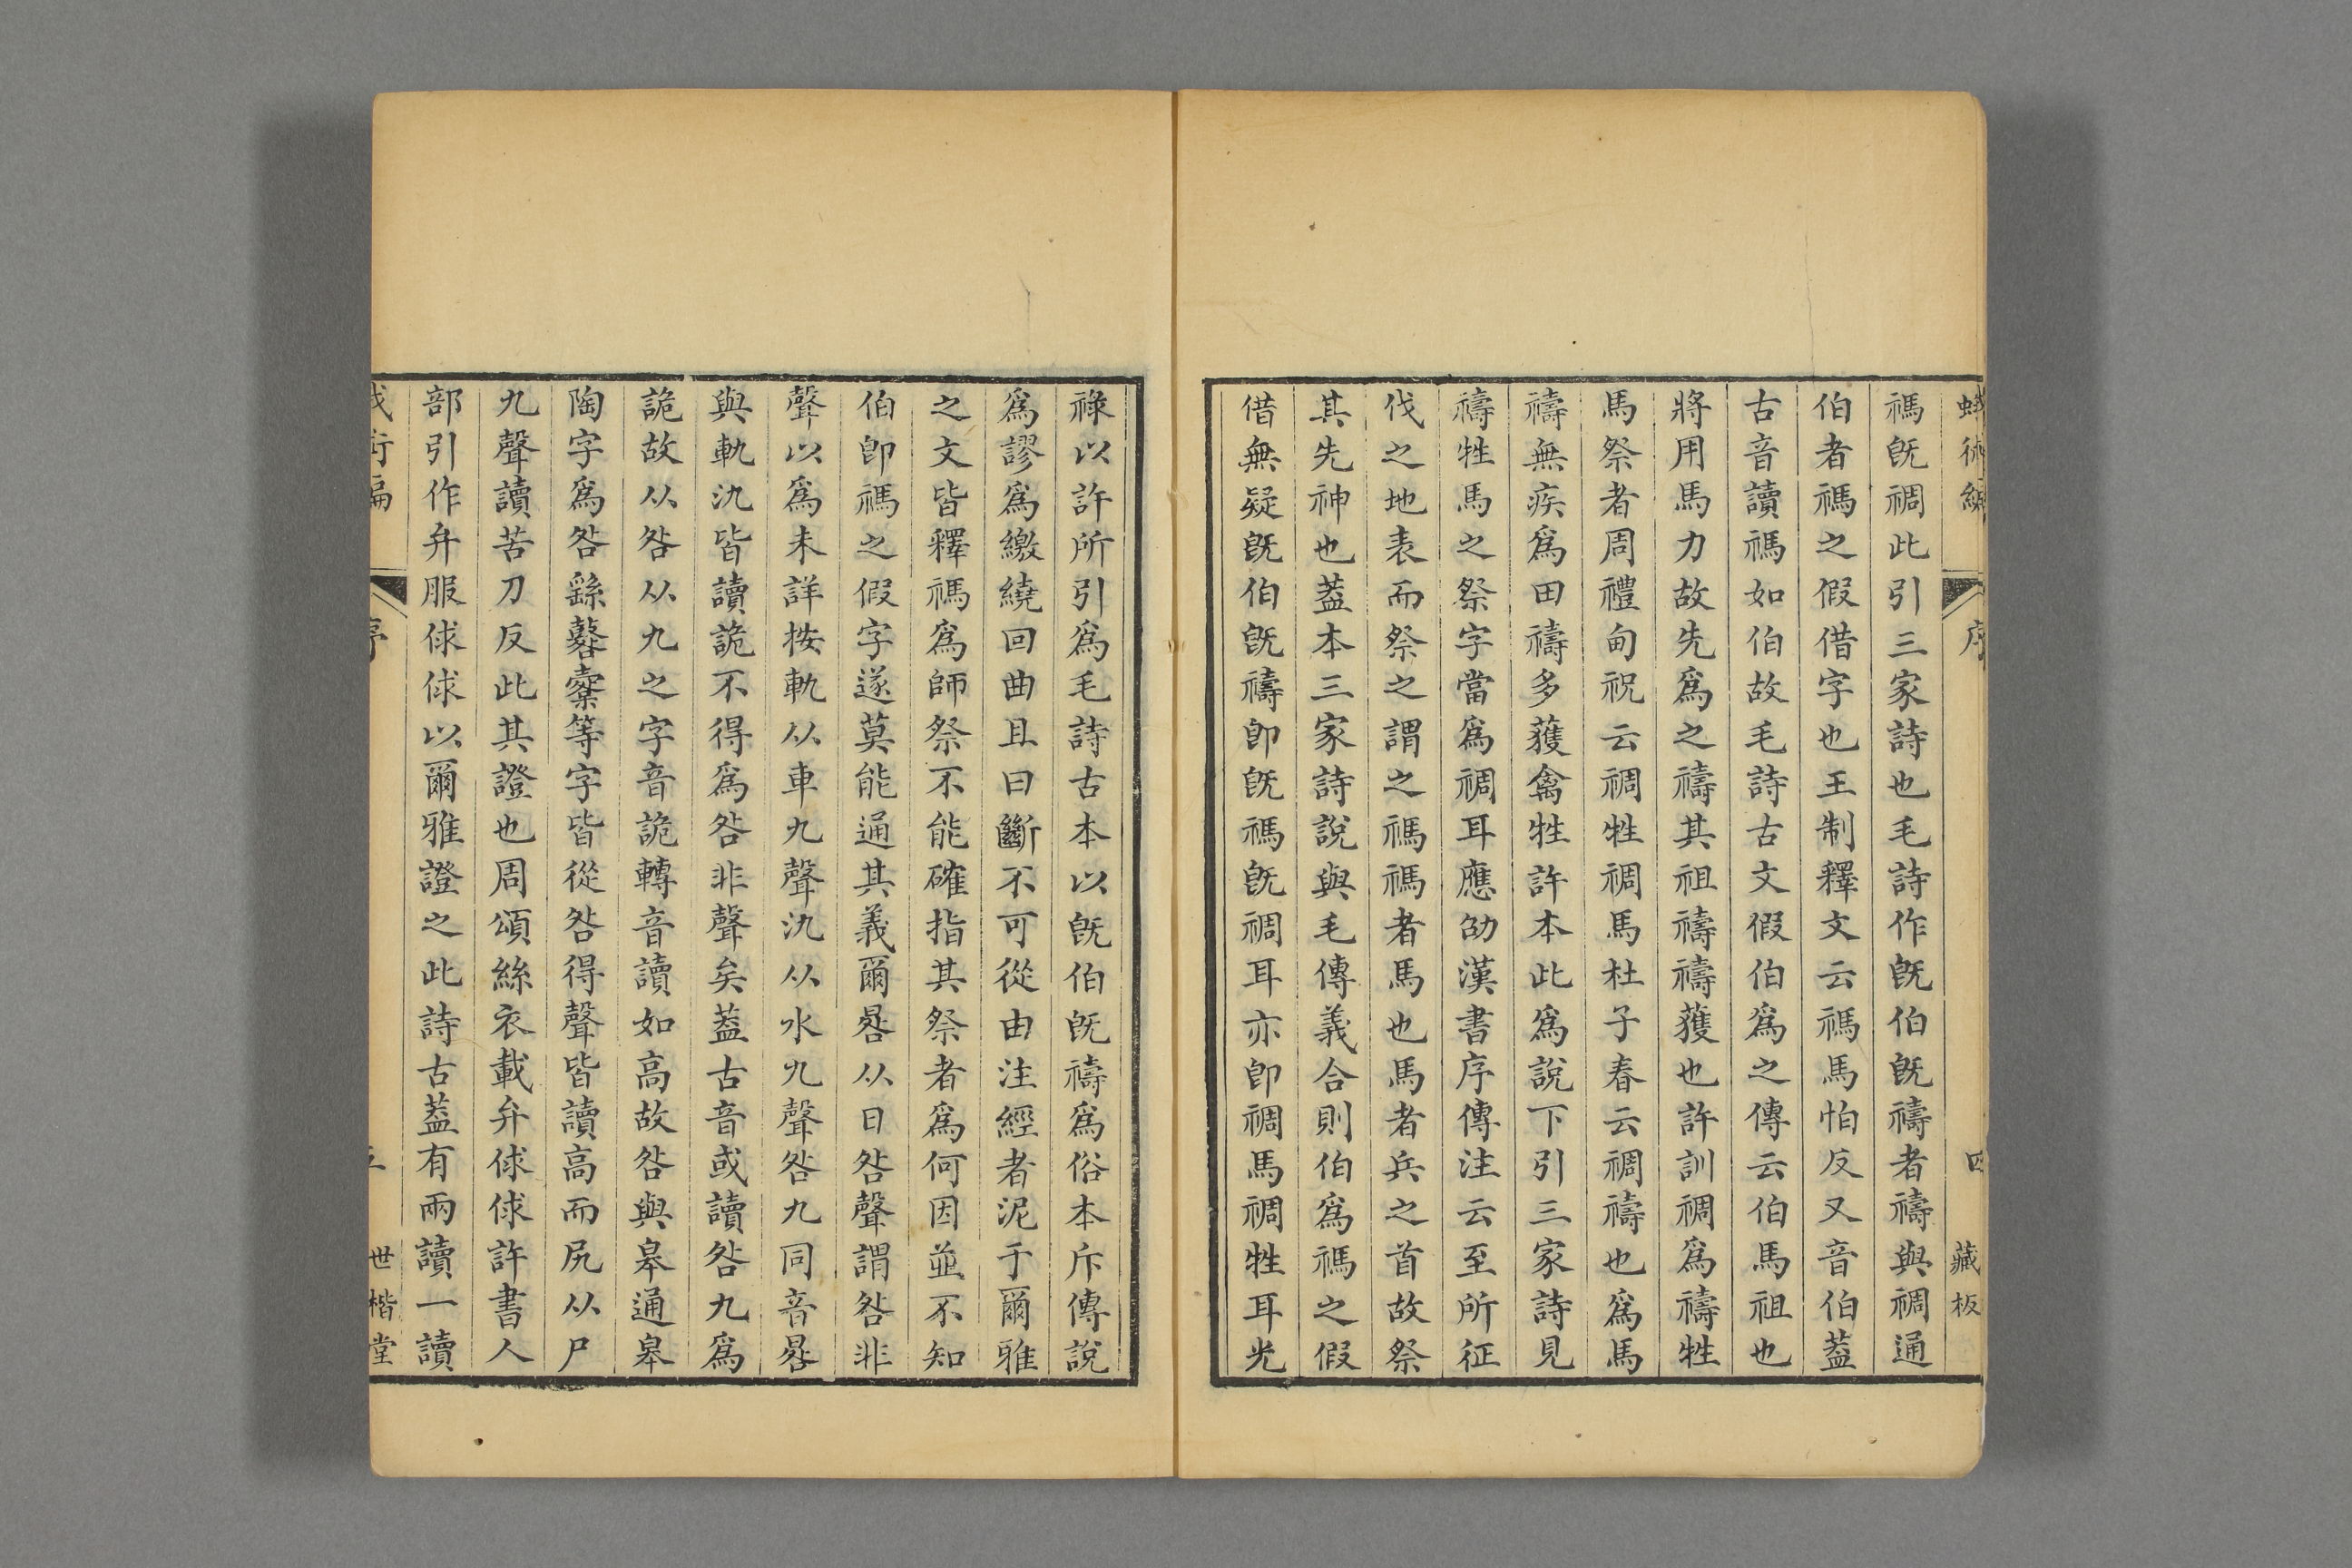 蛾術編
序
四
藏板
禡旣禂此引三家詩也毛詩作旣伯旣禱者禱與禂通
伯者禡之假借字也王制釋文云禡馬怕反又音伯葢
古音讀禡如伯故毛詩古文假伯爲之傳云伯馬祖也
將用馬力故先爲之禱其祖禱禱獲也許訓禂爲禱牲
馬祭者周禮甸祝云禂牲禂馬杜子春云禂禱也爲馬
禱無疾爲田禱多獲禽牲許本此爲說下引三家詩見
禱牲馬之祭字當爲禂耳應劭漢書序傳注云至所征
伐之地表而祭之謂之禡禡者馬也馬者兵之首故祭
其先神也葢本三家詩說與毛傳義合則伯爲禡之假
借無疑旣伯旣禱卽旣禡旣禂耳亦卽禂馬禂牲耳光
祿以許所引爲毛詩古本以旣伯旣禱爲俗本斥傳說
爲謬爲繳繞回曲且曰斷不可從由注經者泥于爾雅
之文皆釋禡爲師祭不能確指其祭者爲何因並不知
伯卽禡之假字遂莫能通其義爾晷从日咎聲謂咎非
聲以爲未詳按軌从車九聲氿从水九聲咎九同音晷
與軌氿皆讀詭不得爲咎非聲矣葢古音或讀咎九爲
詭故从咎从九之字音詭轉音讀如高故咎與皋通皋
陶字爲咎繇鼛櫜等字皆從咎得聲皆讀高而尻从尸
九聲讀苦刀反此其證也周頌絲衣載弁俅俅許書人
部引作弁服俅俅以爾雅證之此詩古葢有兩讀一讀
序
世楷堂